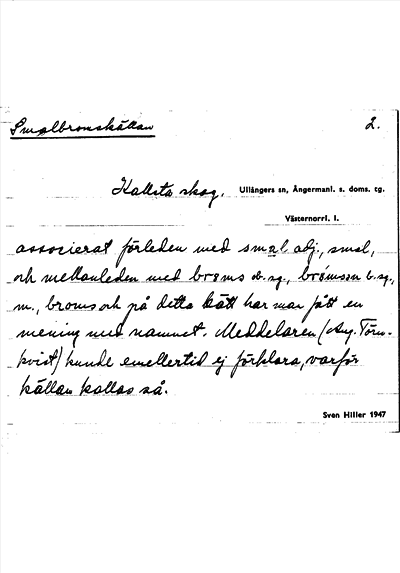 Smalbromskällan 2.
Kallsta skog. Ullångers sn, Ångermanl. s. doms. tg.
Västernorrl. l.
associerat förleden med smal adj., smal,
och mellanleden med broms ob. sg., brömsen b. sg.,
m., broms och på detta sätt har man fått en
mening med namnet. Meddelaren (Aug. Törn-
kvist) kunde emellertid ej förklara, varför
källan kallas så.
Sven Hiller 1947